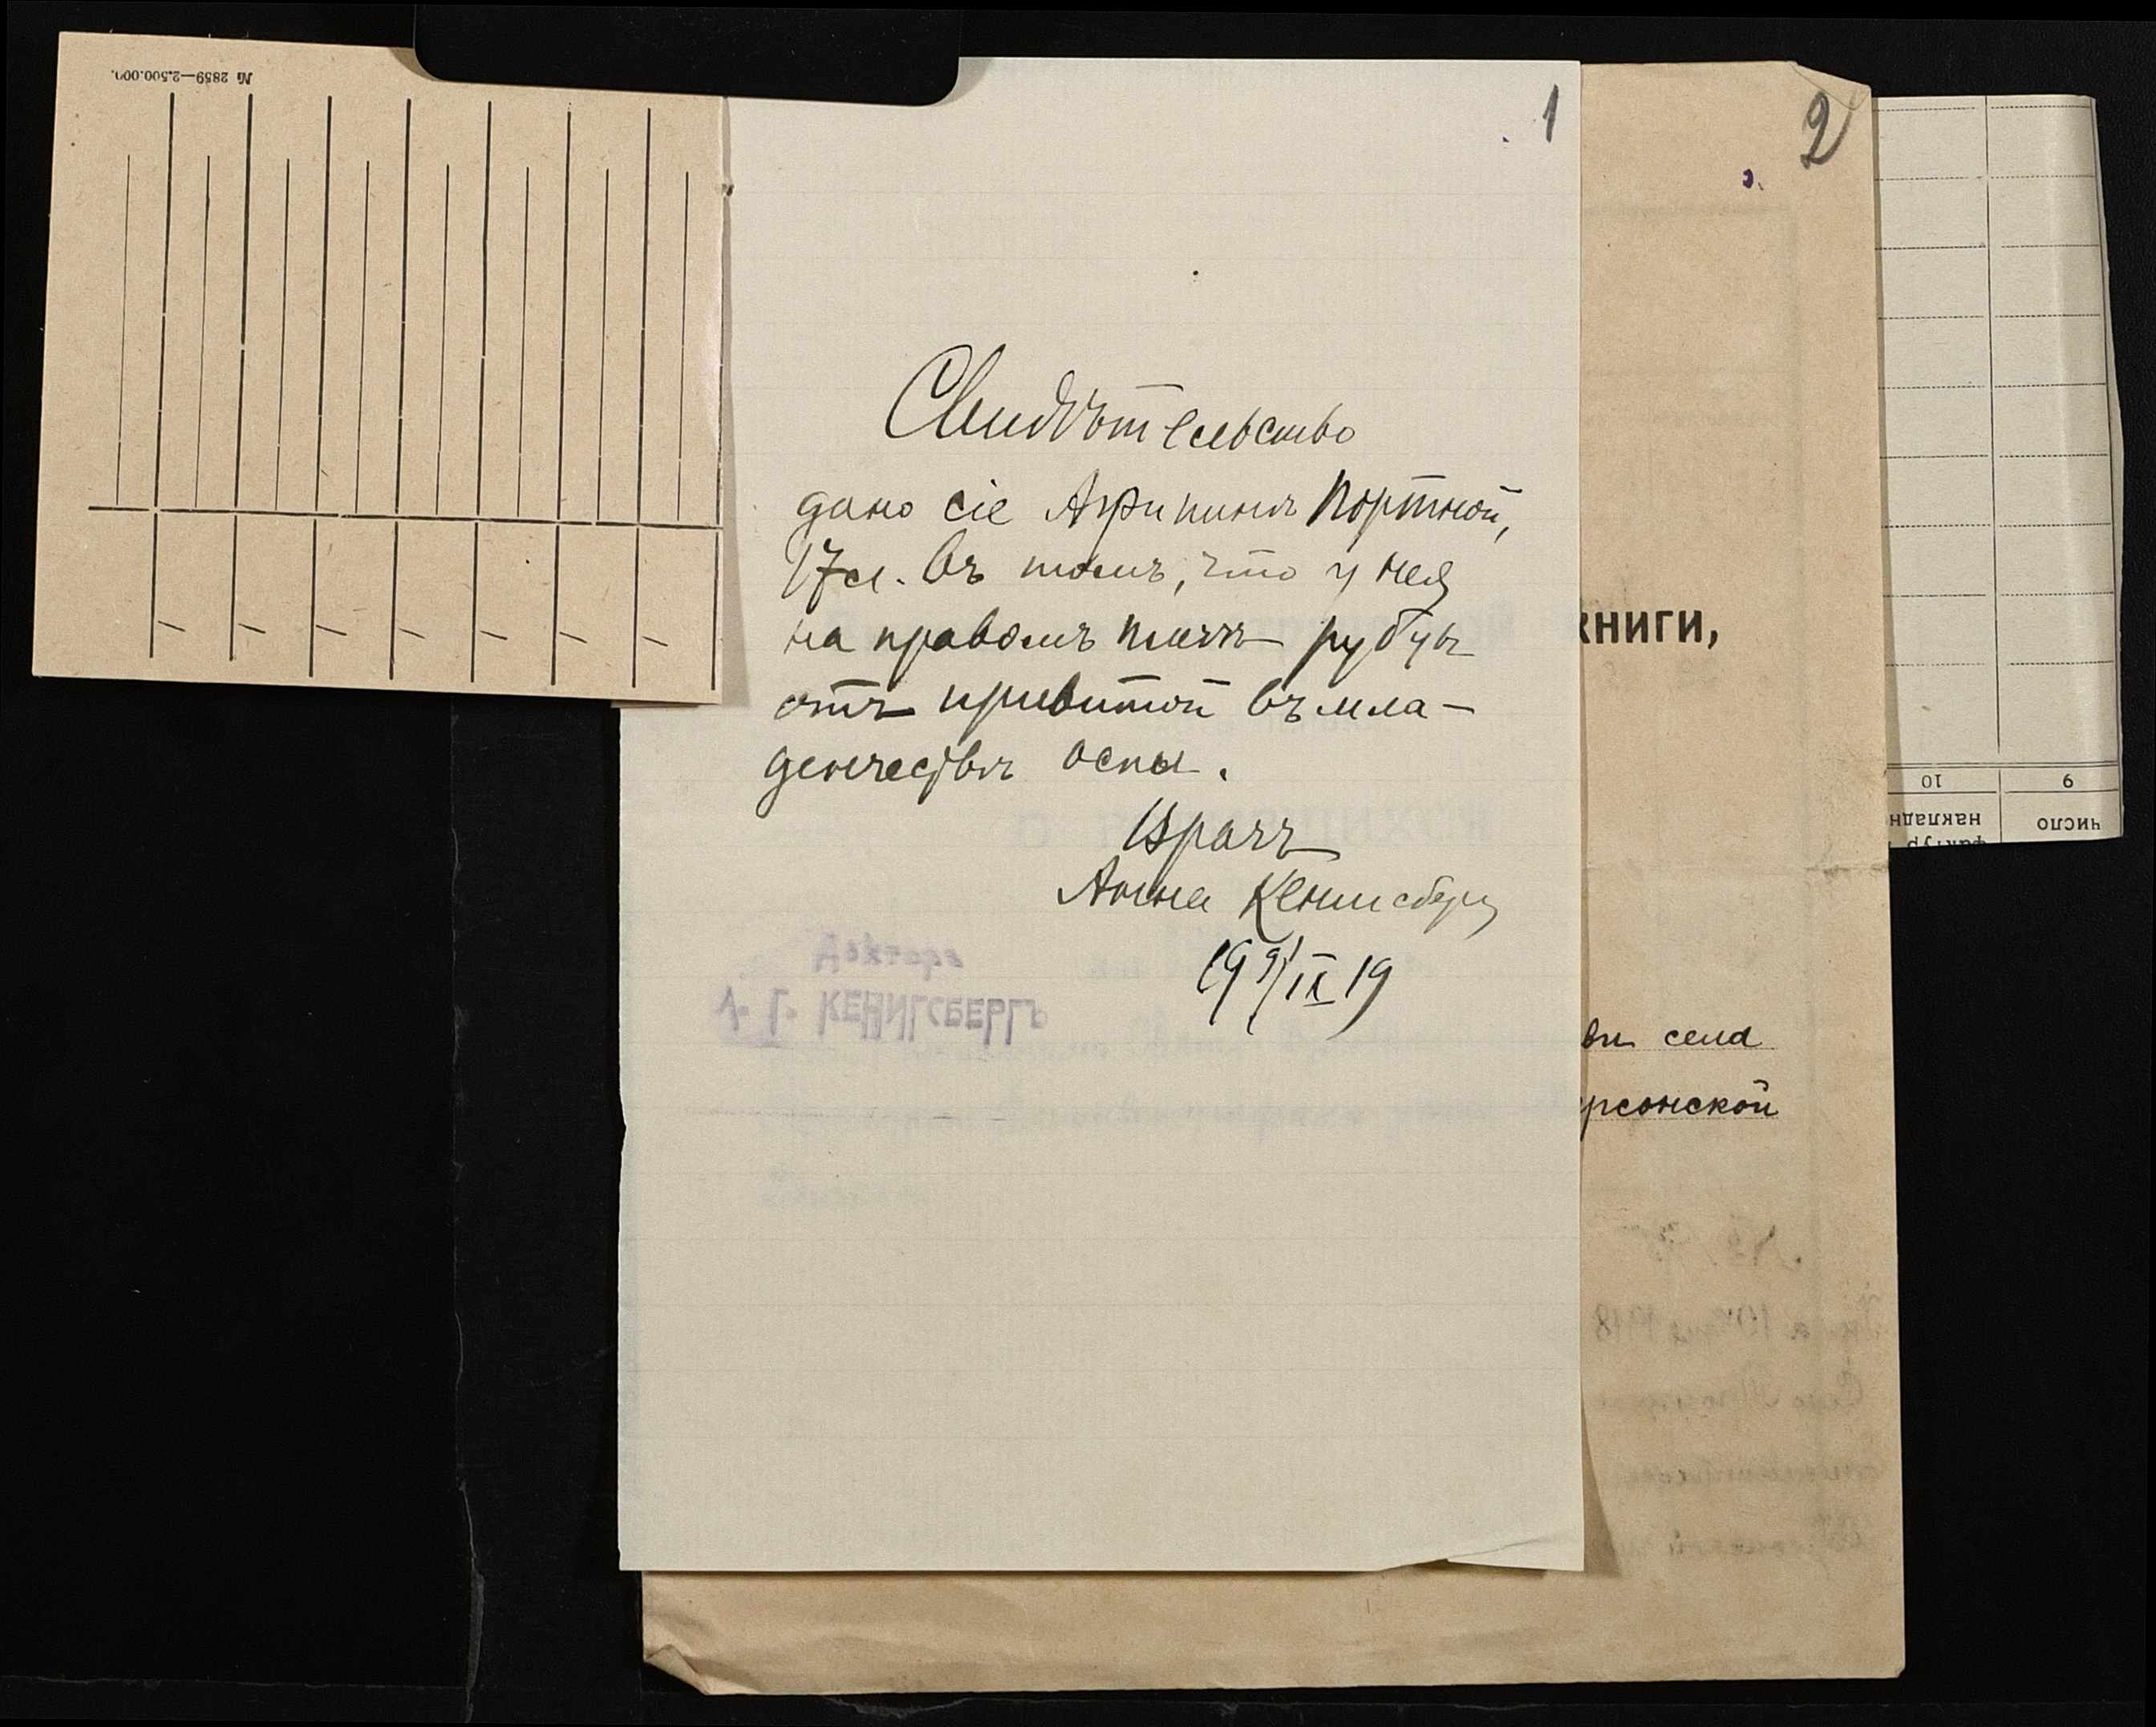 № 2859—2.500.000.
1
2
Свидѣтельство
дано сіе Агрипинѣ Портной,
17 л. въ томъ, что у нея
на правомъ плечѣ рубцы
отъ привитой въ мла-
денчествѣ оспы.
Врачъ
Анна Кенигсберг
19 9/IX 19
Доктора
А. Г. КЕНИГСБЕРГЪ
КНИГИ,
села
ерсонской
10
9
накладн
число
фактур
1918